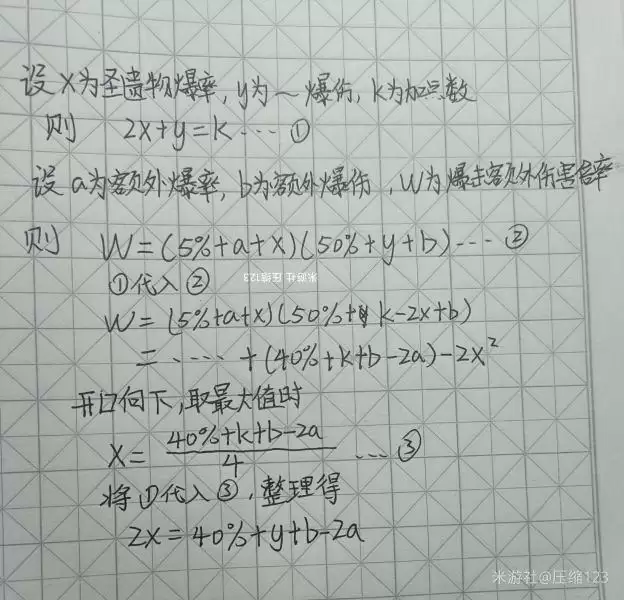 设X为圣遗物爆率, y为~爆伤, k为加点数
则 2x+y=k ···· ①
设 a为额外爆率, b为额外爆伤 , W为爆击额外伤害倍率
则 W=(5%+a+x)(50%+y+b) ···· ②
①代入②
米游社 压缩123
W=(5%+a+x)(50%+k-2x+b)
= ····· +(40%+k+b-2a)-2x²
开口向下,取最大值时
X= (40%+k+b-2a)/4 ···· ③
将①代入③,整理得
2x=40%+y+b-2a
米游社@压缩123